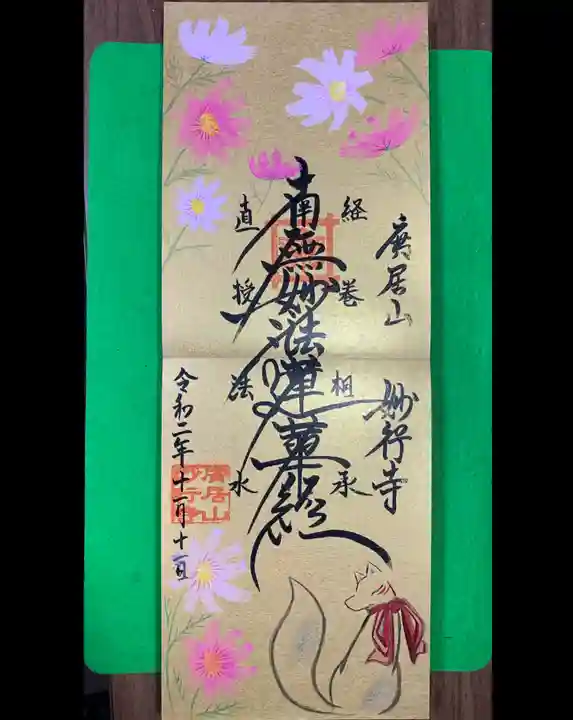 廣居山 妙行寺
経巻相承
南無妙法蓮華経
直授法水
令和二年十一月十一日
廣居山
妙行寺